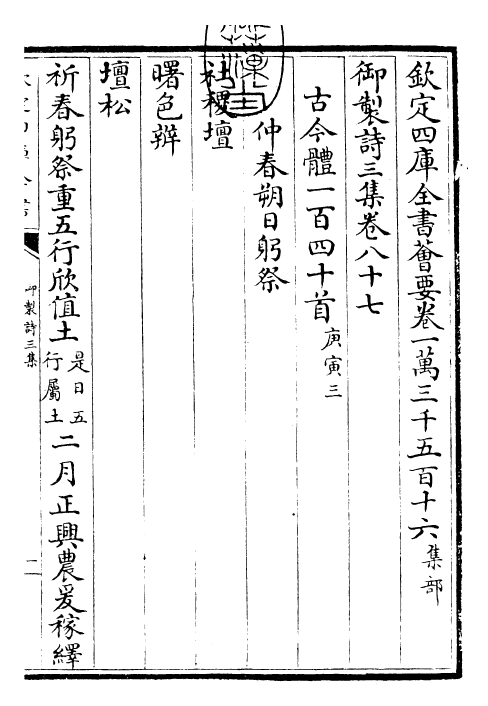 欽定四庫全書薈要卷一萬三千五百十六集部
御製詩三集卷八十七
古今體一百四十首庚寅三
仲春朔日躬祭
社稷壇
曙色辨
壇松
祈春躬祭重五行欣值土是日五行屬土二月正興農爰稼繹
御製詩三集